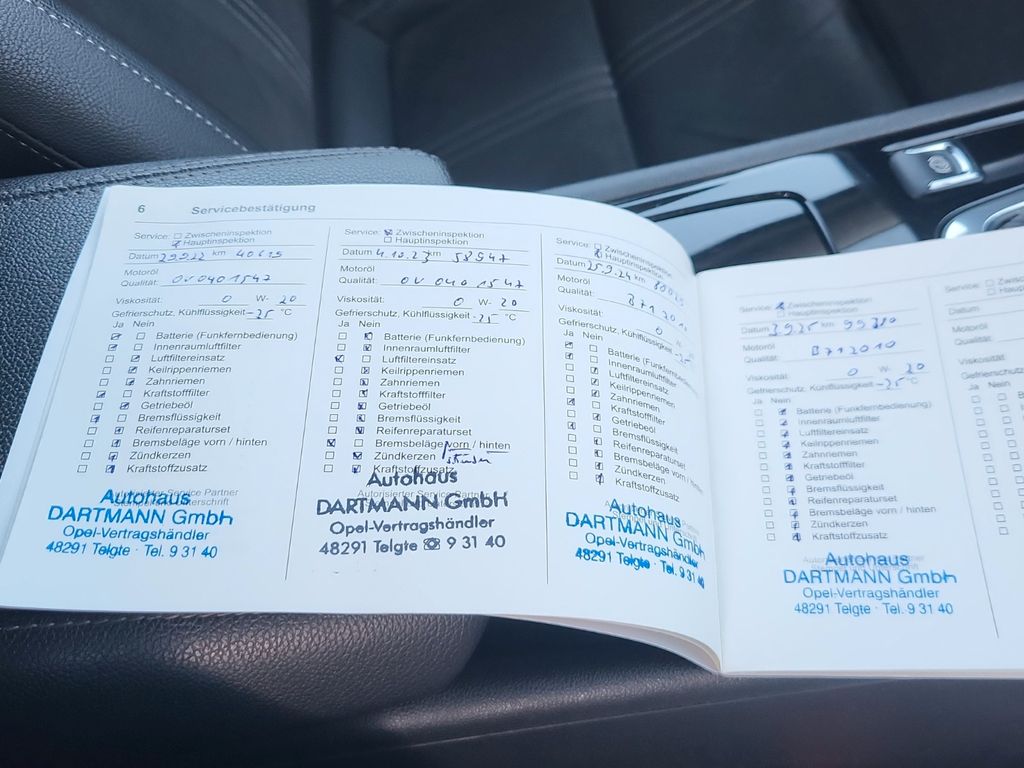 6 Servicebestätigung
Service: Zwischeninspektion
Hauptinspektion
Datum 29.9.22 km
Motoröl
Qualität: OV 040 1547
Viskosität: 0 W- 20
Gefrierschutz, Kühlflüssigkeit -25 °C
Ja Nein
Batterie (Funkfernbedienung)
Innenraumluftfilter
Luftfiltereinsatz
Keilrippenriemen
Zahnriemen
Kraftstofffilter
Getriebeöl
Bremsflüssigkeit
Reifenreparaturset
Bremsbeläge vorn / hinten
Zündkerzen
Kraftstoffzusatz
Autohaus
DARTMANN GmbH
Opel-Vertragshändler
48291 Telgte · Tel. 9 31 40
Service: Zwischeninspektion
Hauptinspektion
Datum 4.10.23 km 58947
Motoröl
Qualität: OV 040 1547
Viskosität: 0 W- 20
Gefrierschutz, Kühlflüssigkeit -25 °C
Ja Nein
Batterie (Funkfernbedienung)
Innenraumluftfilter
Luftfiltereinsatz
Keilrippenriemen
Zahnriemen
Kraftstofffilter
Getriebeöl
Bremsflüssigkeit
Reifenreparaturset
Bremsbeläge vorn / hinten
Zündkerzen
Kraftstoffzusatz
Autorisierter Service Partner
Autohaus
DARTMANN GmbH
Opel-Vertragshändler
48291 Telgte ☎ 9 31 40
Service: Zwischeninspektion
Hauptinspektion
Datum 25.9.24 km
Motoröl
Qualität: B71 2010
Viskosität: 0
Gefrierschutz, Kühlflüssigkeit
Ja Nein
Batterie
Innenraumluftfilter
Luftfiltereinsatz
Keilrippenriemen
Zahnriemen
Kraftstofffilter
Getriebeöl
Bremsflüssigkeit
Reifenreparaturset
Bremsbeläge vorn / hinten
Zündkerzen
Kraftstoffzusatz
Autohaus
DARTMANN GmbH
Opel-Vertragshändler
48291 Telgte · Tel. 9 31 40
Service: Zwischeninspektion
Hauptinspektion
Datum km
Motoröl
Qualität: B712010
Viskosität: 0 W- 20
Gefrierschutz, Kühlflüssigkeit -25 °C
Ja Nein
Batterie (Funkfernbedienung)
Innenraumluftfilter
Luftfiltereinsatz
Keilrippenriemen
Zahnriemen
Kraftstofffilter
Getriebeöl
Bremsflüssigkeit
Reifenreparaturset
Bremsbeläge vorn / hinten
Zündkerzen
Kraftstoffzusatz
Autohaus
DARTMANN GmbH
Opel-Vertragshändler
48291 Telgte · Tel. 9 31 40
Service:
Datum
Motoröl
Qualität:
Viskosität
Ja Nein